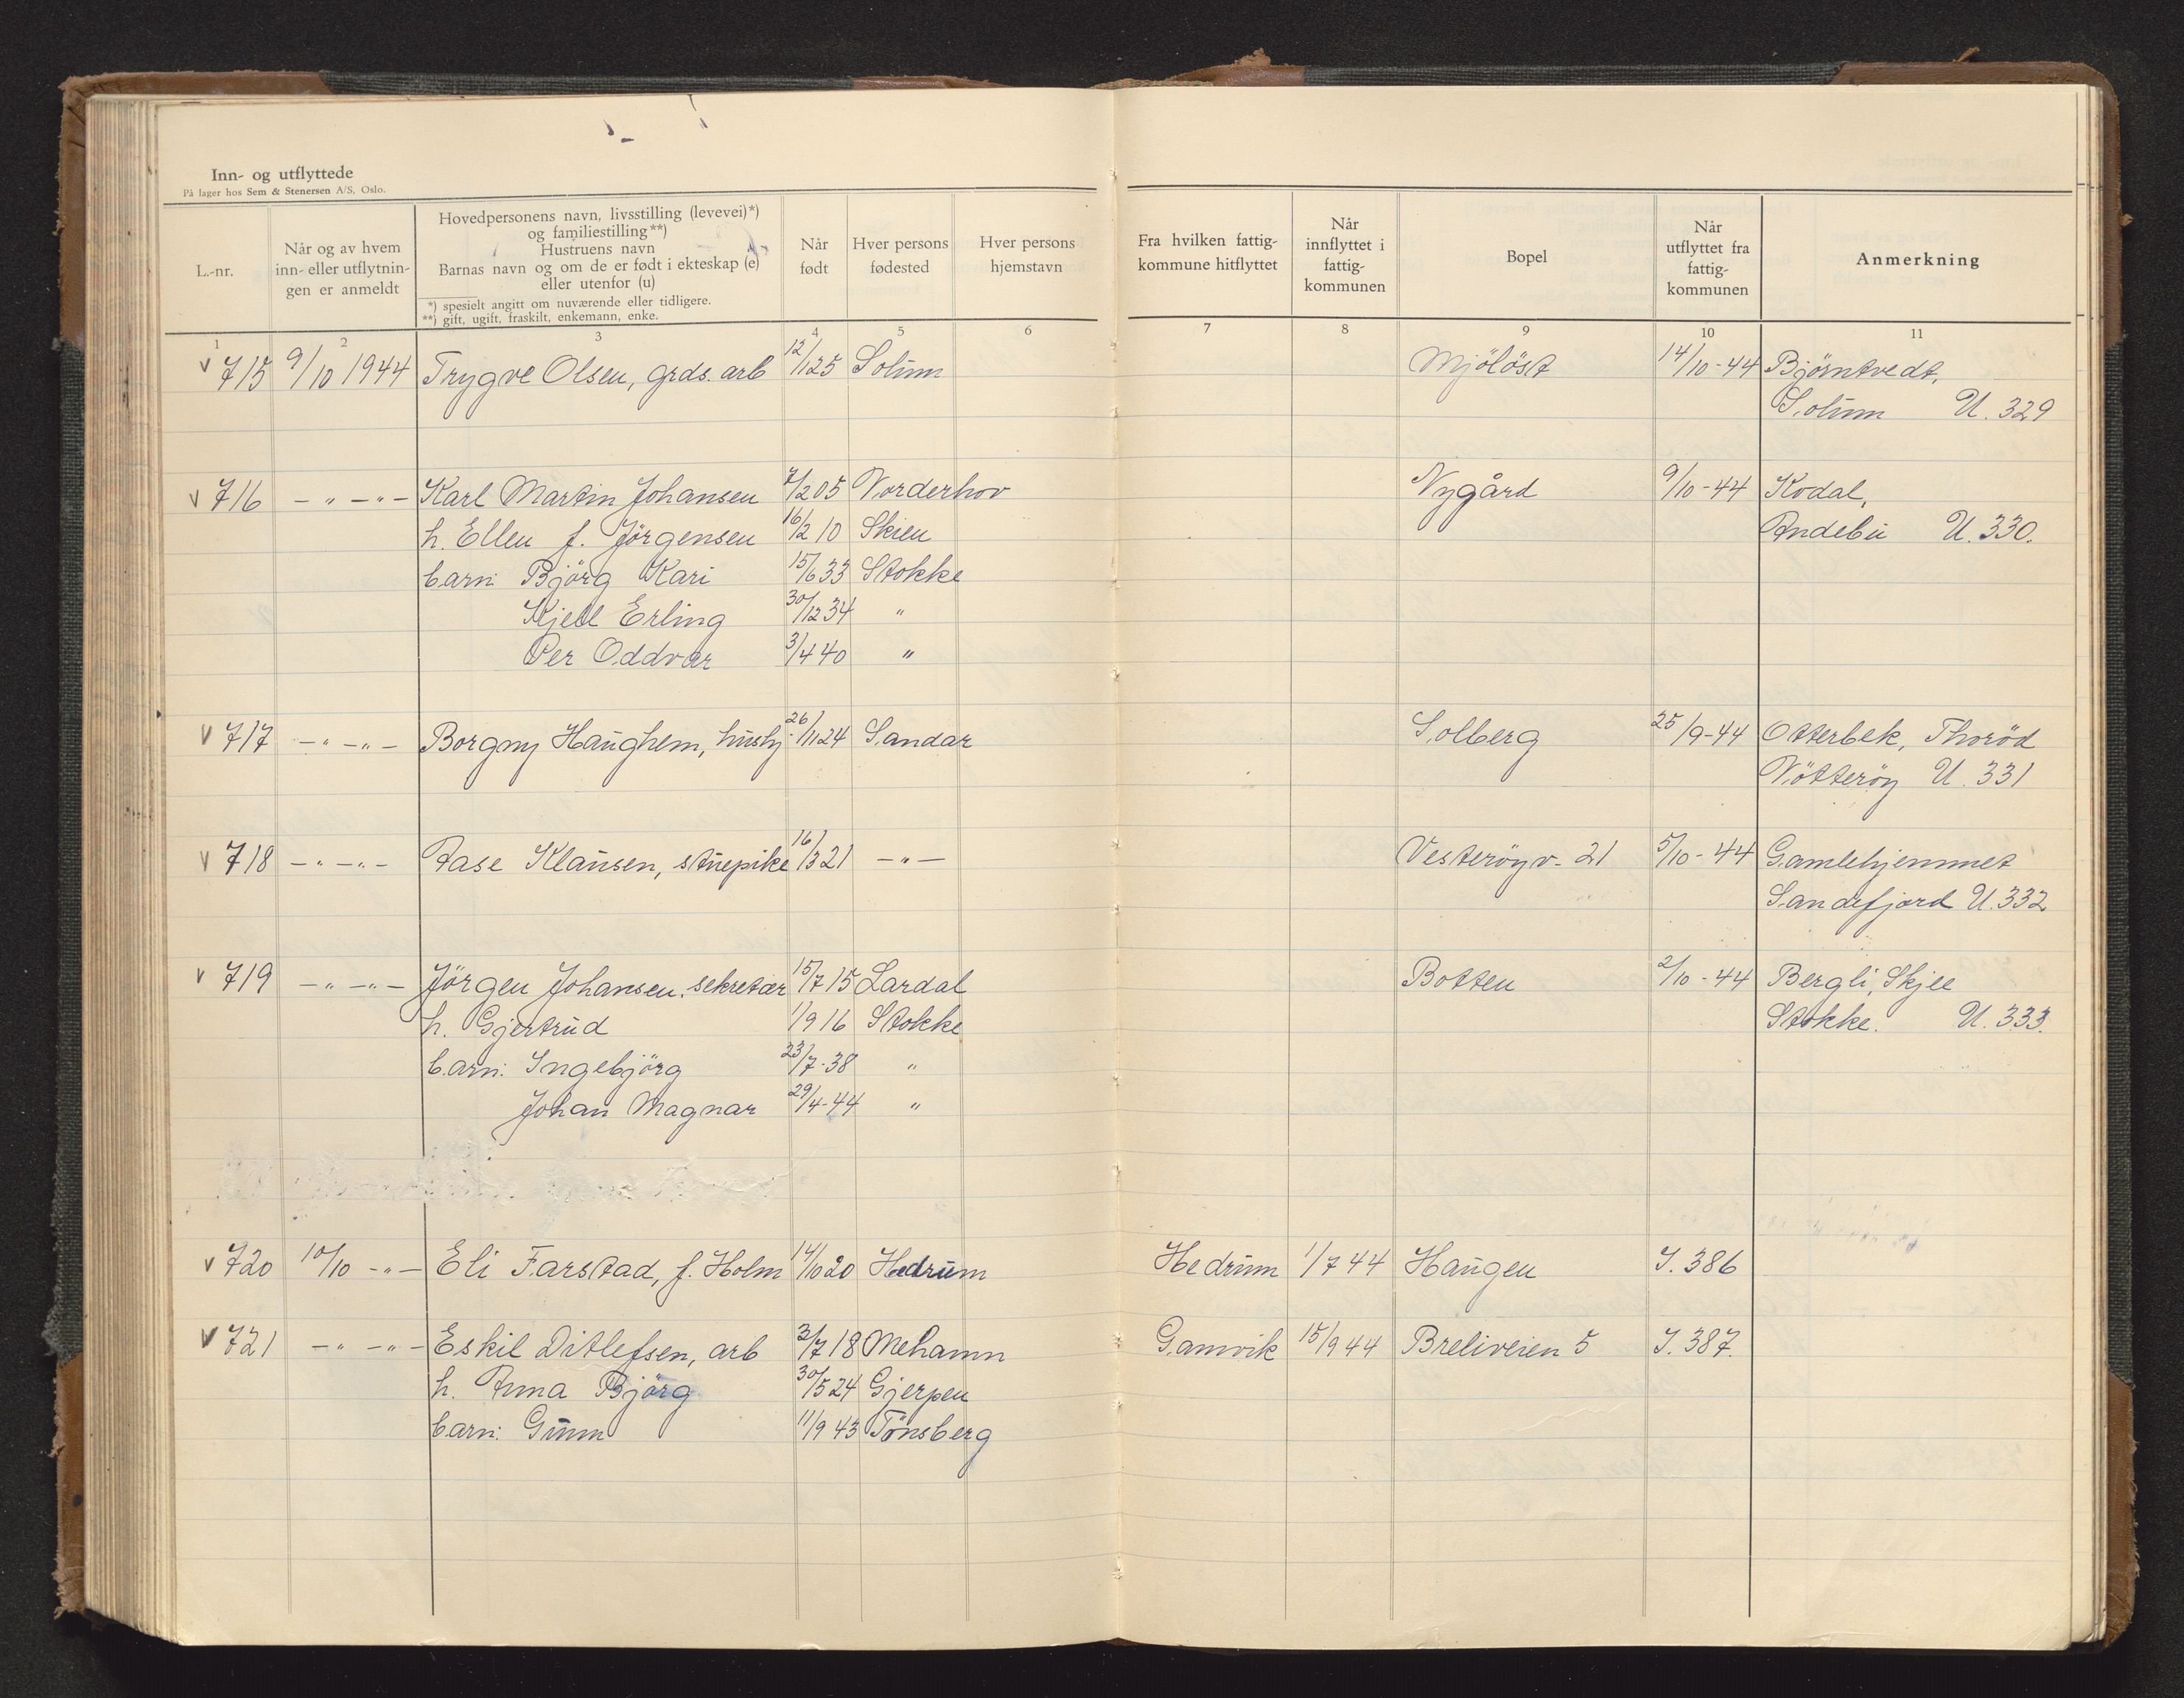 Inn- og utflyttede
På lager hos Sem & Stenersen A/S, Oslo.
L.-nr.
Når og av hvem
inn- eller utflytnin-
gen er anmeldt
Hovedpersonens navn, livsstilling (levevei)*)
og familiestilling**)
Hustruens navn
Barnas navn og om de er født i ekteskap (e)
eller utenfor (u)
*) spesielt angitt om nuværende eller tidligere.
**) gift, ugift, fraskilt, enkemann, enke.
Når
født
Hver persons
fødested
Hver persons
hjemstavn
Fra hvilken fattig-
kommune hitflyttet
Når
innflyttet i
fattig-
kommunen
Bopel
Når
utflyttet fra
fattig-
kommunen
Anmerkning
1 2 3 4 5 6 7 8 9 10 11
v 715 9/10 1944 Trygve Olsen, grds. arb 12/1 25 Solum Mjölöst 14/10-44 Bjørntvedt,
Solum U. 329
v 716 – " – " – Karl Martin Johansen 7/2 05 Norderhov Nygård 9/10-44 Kodal,
h. Ellen f. Jörgensen 16/2 10 Skien Andebu U. 330.
barn: Björg Kari 15/6 33 Stokke
Kjell Erling 30/12 34 "
Per Oddvar 3/4 40 "
v 717 – " – " – Borgny Haughem, hushj. 26/11 24 Sandar Solberg 25/9-44 Otterbek, Thoröd
Nötteröy U. 331
v 718 – " – " – Aase Klausen, stuepike 16/3 21 – " – Vesteröyv. 21 5/10-44 Gamlehjemmet
Sandefjord U. 332
v 719 – " – " – Jörgen Johansen, sekretær 15/7 15 Lardal Botten 2/10-44 Bergli, Skjee
h. Gjertrud 1/9 16 Stokke Stokke. U. 333.
barn: Ingebjörg 23/7-38 "
Johan Magnar 29/4-44 "
v 720 10/10 – " – Eli Farstad, f. Holm 14/10 20 Hedrum Hedrum 1/7 44 Haugen J. 386
v 721 – " – " – Eskil Ditlefsen, arb 3/7 18 Mehamn Gamvik 15/9 44 Breliveien 5 J. 387.
h. Anna Björg 30/5 24 Gjerpen
barn: Gunn 11/9 43 Tönsberg